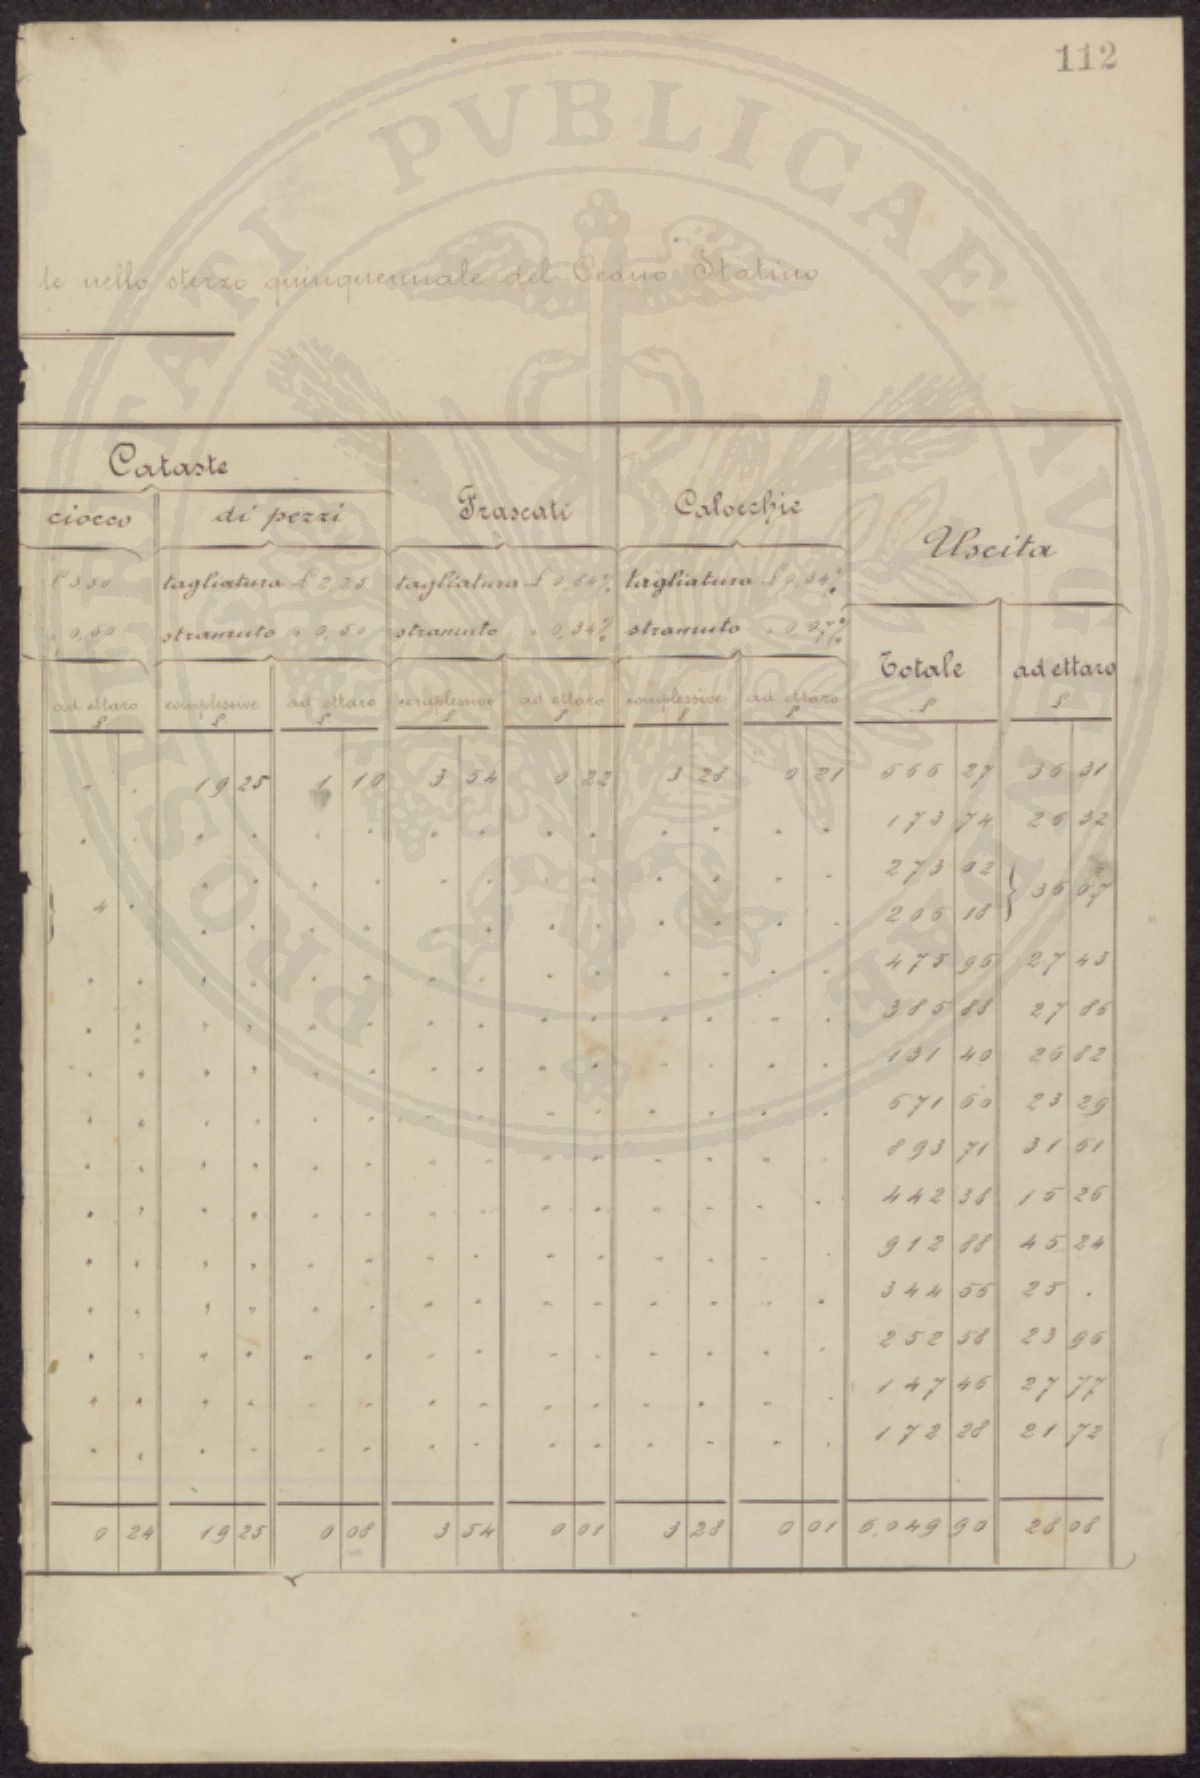 112
PROSPERITATI PVBLICAE AVGENDAE
te nello sterzo quinquennale del Ceduo Statino
Cataste Frascati Calocchie Uscita
ciocco di pezzi
£ 3,30 tagliatura £ 2,25 tagliatura £ 0,64 % tagliatura £ 0,34 %
" 0,50 stramuto " 0,50 stramuto " 0,34 % stramuto
Totale ad ettaro
ad ettaro complessive ad ettaro complessive ad ettaro complessive ad ettaro £ £
£ £ £ £ £ £ £
. . 19 25 1 10 3 54 0 22 3 28 0 21 566 27 36 31
. . . . . . . . . . . . . . 173 74 26 32
. . . . . . . . . . . . 273 02 } 36 07
4 . . . . . . . . . . . . . 206 18
. . . . . . . . . . . . . . 475 96 27 43
. . . . . . . . . . . . . . 385 88 27 86
. . . . . . . . . . . . . . 131 40 26 82
. . . . . . . . . . . . . . 671 60 23 29
. . . . . . . . . . . . . . 893 71 31 61
. . . . . . . . . . . . . . 442 38 15 26
. . . . . . . . . . . . . . 912 88 45 24
. . . . . . . . . . . . . . 344 56 25 .
. . . . . . . . . . . . . . 252 58 23 96
. . . . . . . . . . . . . . 147 46 27 77
. . . . . . . . . . . . . . 172 28 21 72
0 24 19 25 0 08 3 54 0 01 3 28 0 01 6,049 90 28 08